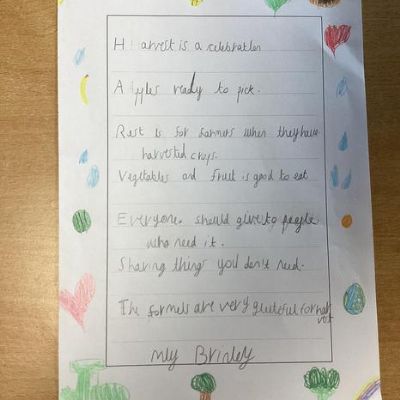 H arvest is a celebration
Apples ready to pick.
Rest is for farmers when they have
harvested crops.
Vegetables and fruit is good to eat
Everyone should give to people
who need it.
Sharing things you don't need.
The farmers are very grateful for harvest
Brinley